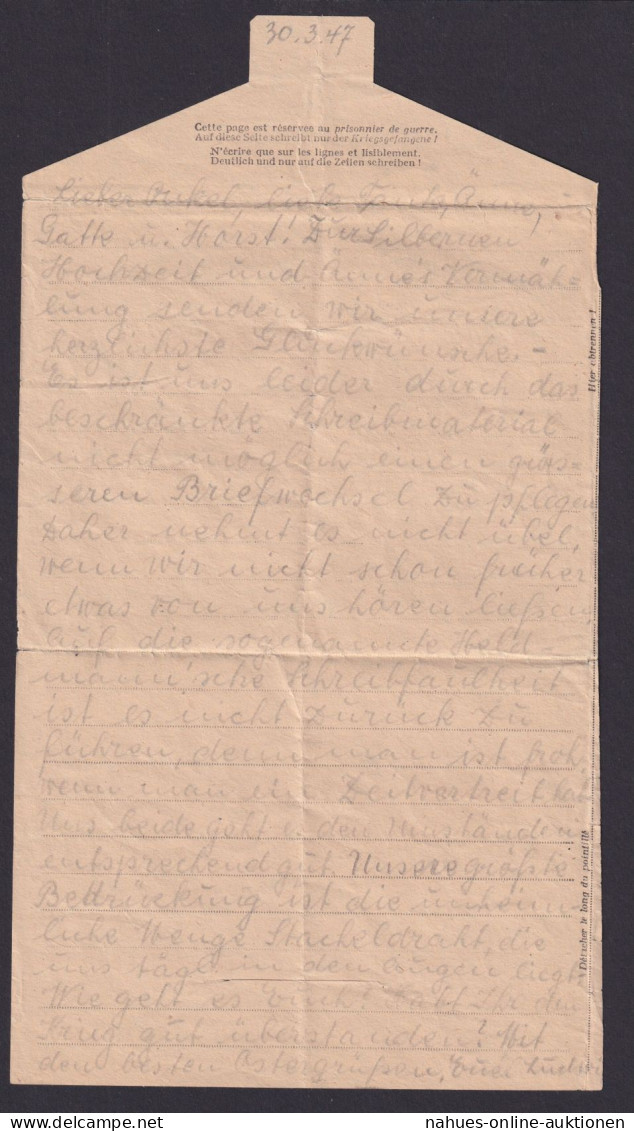 30.3.47
Cette page est réservée au prisonnier de guerre.
Auf diese Seite schreibt nur der Kriegsgefangene!
N'écrire que sur les lignes et lisiblement.
Deutlich und nur auf die Zeilen schreiben!
Lieber Onkel, liebe Tante, Änne,
Gatte u. Horst! Zur Silbernen
Hochzeit und Änne's Vermäh-
lung senden wir unsere
herzlichste Glückwünsche. -
Es ist uns leider durch das
beschränkte Schreibmaterial
nicht möglich, einen grös-
seren Briefwechsel zu pflegen
Daher nehmt es nicht übel,
wenn wir nicht schon früher
etwas von uns hören ließen.
Auf die sogenannte Held-
mann'sche Schreibfaulheit
ist es nicht zurück zu
führen, denn man ist froh,
wenn man ein Zeitvertreib hat
Uns beide geht es den Umständen
entsprechend gut Unsere größte
Bedrückung ist die unheim-
liche Menge Stacheldraht, die
uns tägl. in den Augen liegt.
Wie geht es Euch? Habt Ihr den
Krieg gut überstanden? Mit
den besten Ostergrüßen, Euer
Hier abtrennen!
Détacher le long du pointillé
nahues-online-auktionen